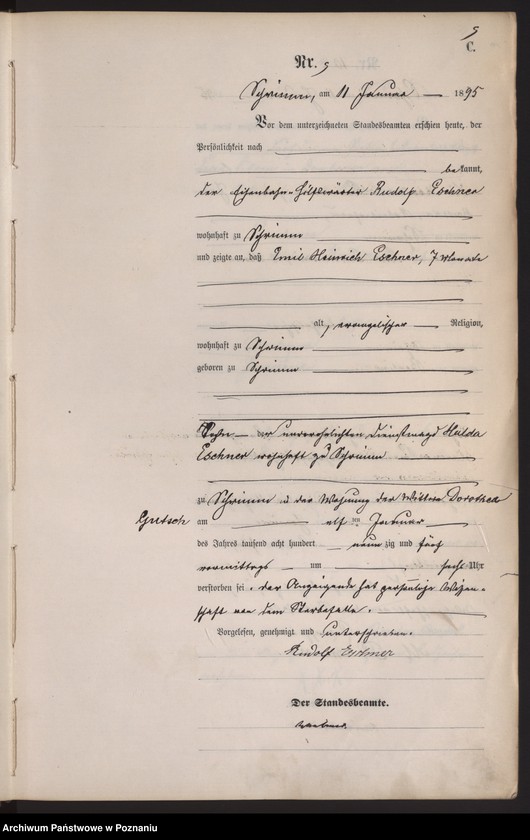 9
C.
Nr. 9
Schrimm, am 11 Januar 1895
Vor dem unterzeichneten Standesbeamten erschien heute, der
Persönlichkeit nach
bekannt,
der Eisenbahn-Hilfswärter Rudolf Eschner
wohnhaft zu Schrimm
und zeigte an, daß Emil Heinrich Eschner, 7 Monate
alt, evangelischer Religion,
wohnhaft zu Schrimm
geboren zu Schrimm
Sohn der unverehelichten Dienstmagd Hulda
Eschner wohnhaft zu Schrimm
zu Schrimm in der Wohnung der Wittwe Dorothea
Gutsch am elften Januar
des Jahres tausend acht hundert neunzig und fünf
vormittags um sechs Uhr
verstorben sei. Der Anzeigende hat persönliche Wissen-
schaft von dem Sterbefalle.
Vorgelesen, genehmigt und unterschrieben.
Rudolf Eschner
Der Standesbeamte.
Archiwum Państwowe w Poznaniu